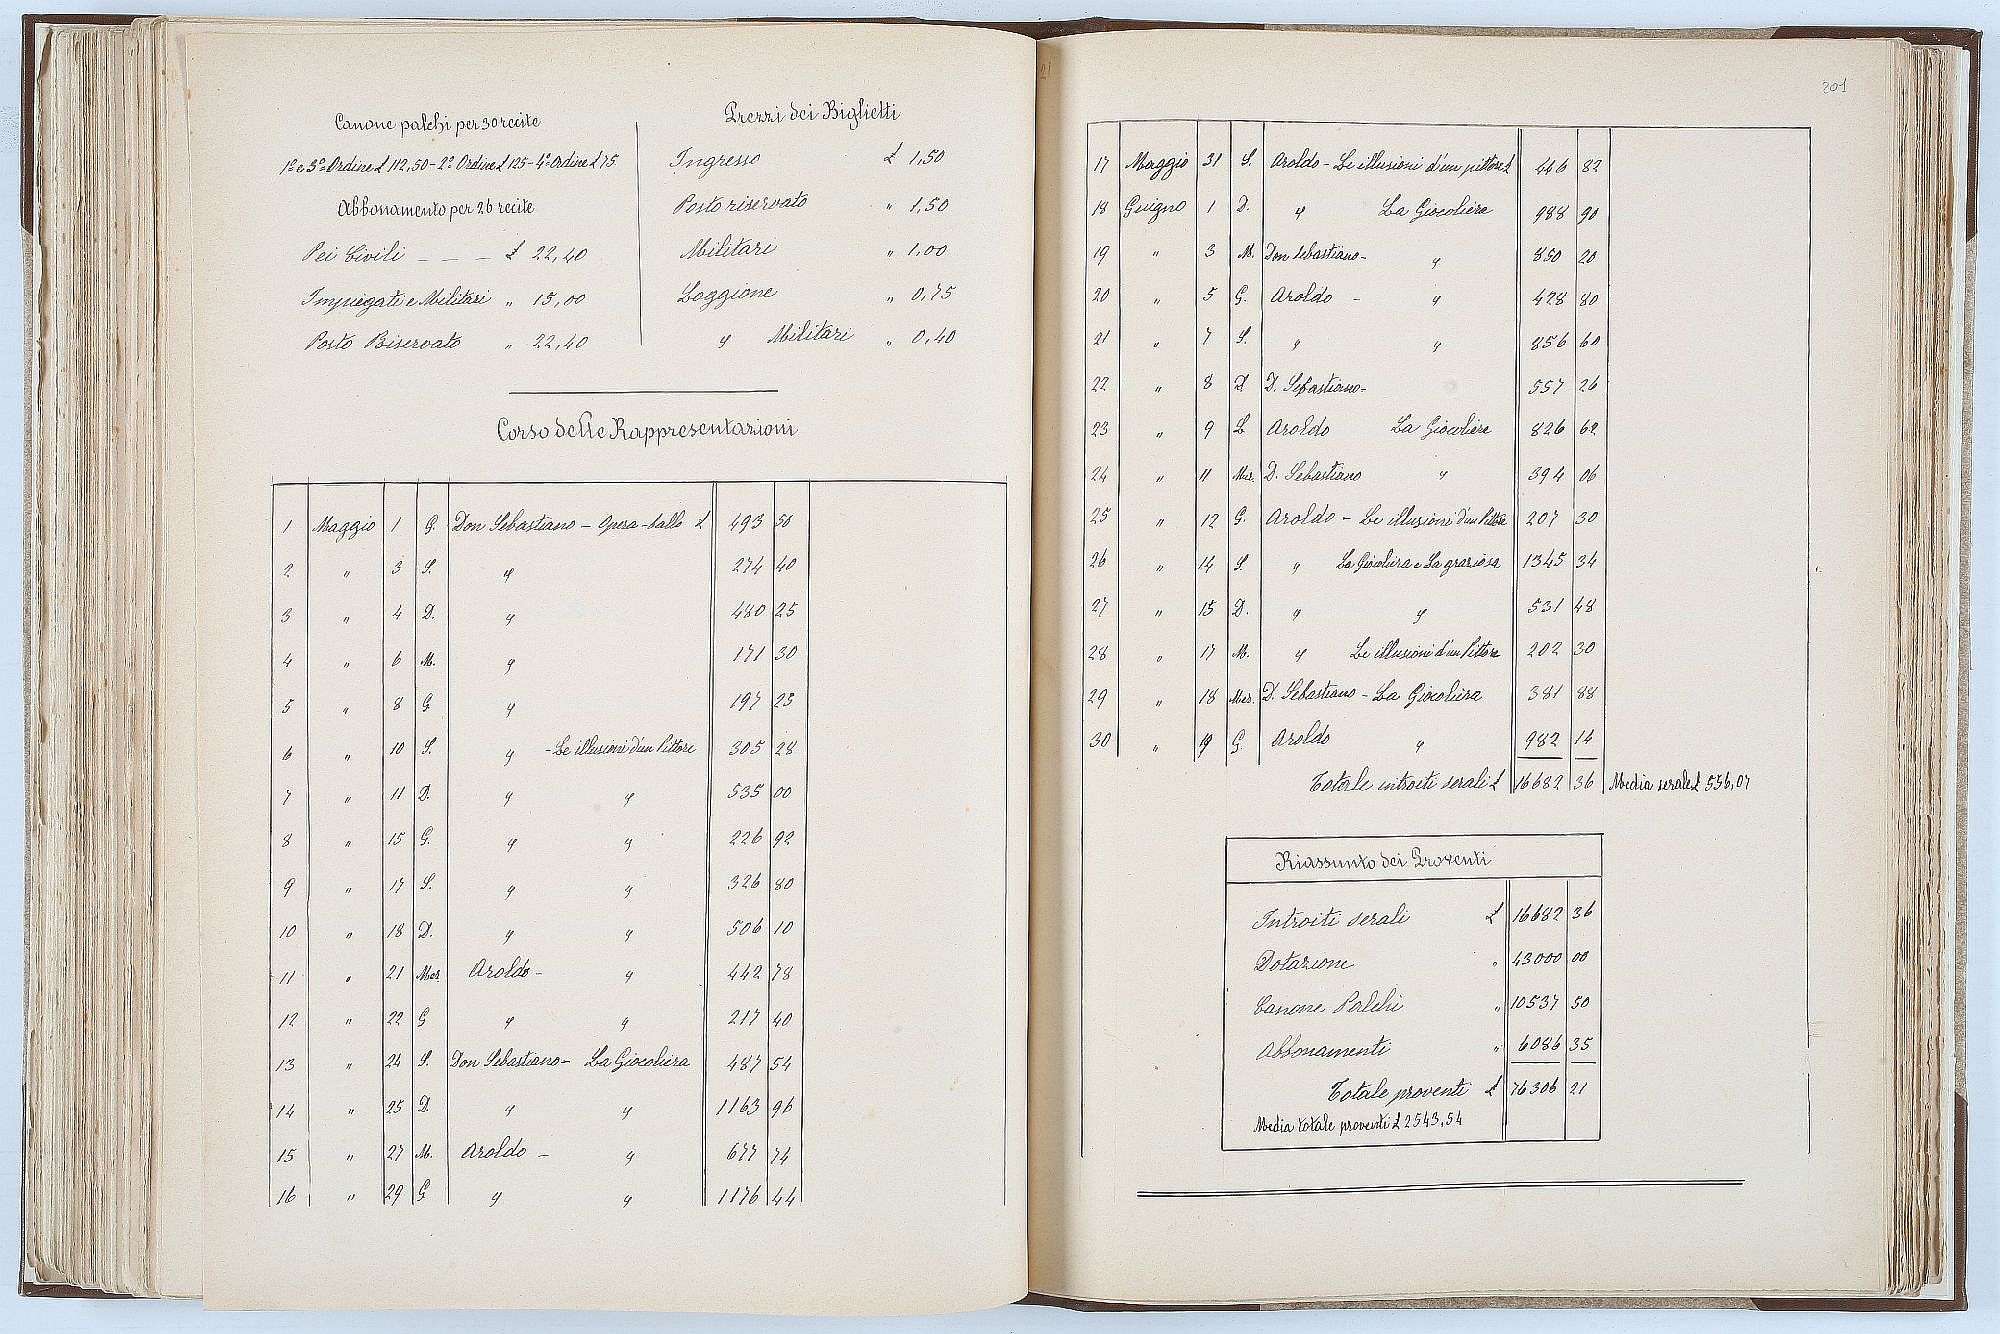 Canone palchi per 30 recite
1º e 3º Ordine £ 112,50 - 2º Ordine £ 125 - 4º Ordine £ 75
Abbonamento per 26 recite
Pei Civili - - - £ 22,40
Impiegati e Militari " 15,00
Posto Riservato " 22,40
Prezzi dei Biglietti
Ingresso £ 1,50
Posto riservato " 1,50
Militari " 1,00
Loggione " 0,75
" Militari " 0,40
Corso delle Rappresentazioni
1 Maggio 1 G. Don Sebastiano - Opera-ballo £ 493 50
2 " 3 S. " 274 40
3 " 4 D. " 480 25
4 " 6 M. " 171 30
5 " 8 G " 197 23
6 " 10 S. " - Le illusioni d'un Pittore 305 28
7 " 11 D. " " 535 00
8 " 15 G. " " 226 92
9 " 17 S. " " 326 80
10 " 18 D. " " 506 10
11 " 21 Mer. Aroldo - " 442 78
12 " 22 G " " 217 40
13 " 24 S. Don Sebastiano - La Giocoliera 487 54
14 " 25 D. " " 1163 96
15 " 27 M. Aroldo - " 677 74
16 " 29 G " " 1176 44
21
201
17 Maggio 31 S. Aroldo - Le illusioni d'un pittore £ 446 82
18 Guigno 1 D. " La Giocoliera 988 90
19 " 3 M. Don Sebastiano - " 850 20
20 " 5 G. Aroldo - " 428 80
21 " 7 S. " " 856 60
22 " 8 D D. Sebastiano - 557 26
23 " 9 L Aroldo La Giocoliere 826 62
24 " 11 Mer. D. Sebastiano " 394 06
25 " 12 G. Aroldo - Le illusioni d'un Pittore 207 30
26 " 14 S. " La Giocoliera e La graziosa 1345 34
27 " 15 D. " " 531 48
28 " 17 M. " Le illusioni d'un Pittore 202 30
29 " 18 Mer. D. Sebastiano - La Giocoliera 381 88
30 " 19 G. Aroldo " 982 14
Totale introiti serali £ 16682 36 Media serale £ 556,07
Riassunto dei Proventi
Introiti serali £ 16682 36
Dotazione " 43000 00
Canone Palchi " 10537 50
Abbonamenti " 6086 35
Totale proventi £ 76306 21
Media totale proventi £ 2543,54